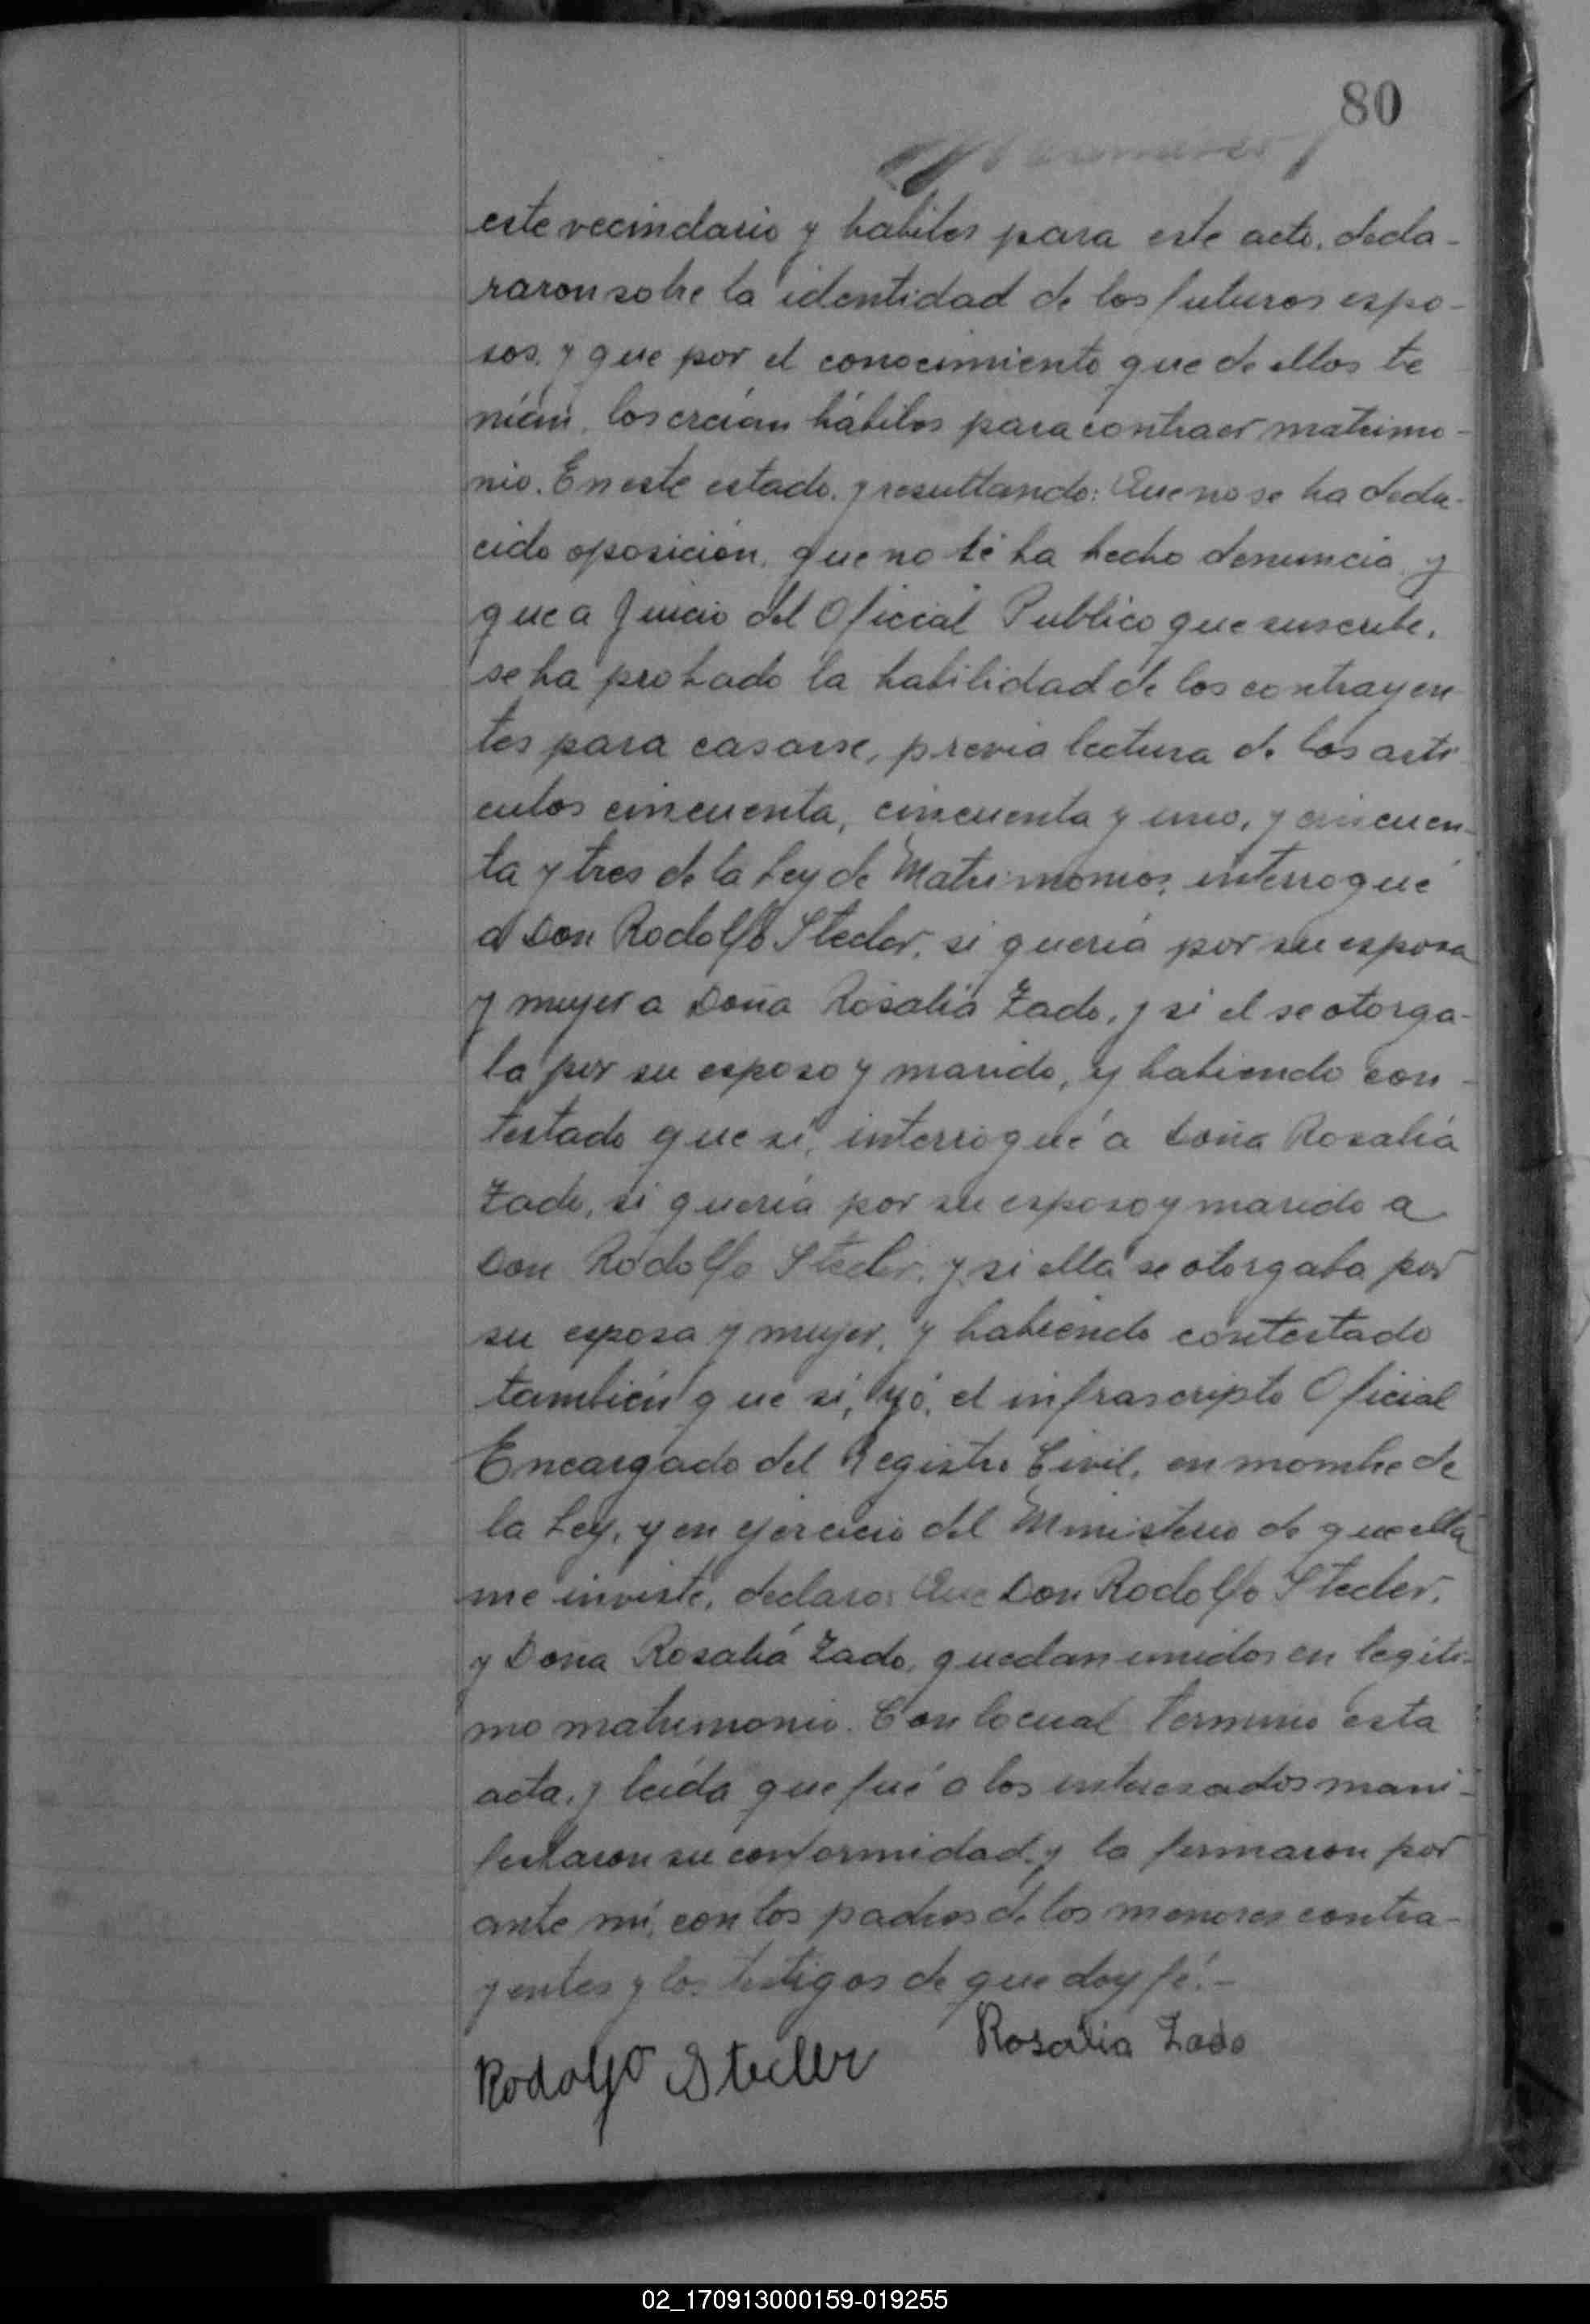 80
este vecindario y habiles para este acto, decla-
raron sobre la identidad de los futuros espo-
sos, y que por el conocimiento que de ellos te
nían, los creían hábiles para contraer matrimo-
nio. En este estado, y resultando: Que no se ha dedu-
cido oposición, que no sé ha hecho denuncia, y
que a Juicio del Oficial Publico que suscribe,
se ha probado la habilidad de los contrayen
tes para casarse, previa lectura de los artí
culos cincuenta, cincuenta y uno, y cincuen-
ta y tres de la Ley de Matrimonios, interrogué
a Don Rodolfo Steder, si quería por su esposa
y mujer a Doña Rosalía Zado, y si el se otorga-
ba por su esposo y marido, y habiendo con-
testado que sí, interrogué a Doña Rosalía
Zado, si quería por su esposo y marido a
Don Rodolfo Steder, y si ella se otorgaba por
su esposa y mujer, y habiendo contestado
también que sí, yó, el infrascripto Oficial
Encargado del Registro Civil, en nombre de
la Ley, y en ejercicio del Ministerio de que ella
me inviste, declaro: Que Don Rodolfo Steder,
y Doña Rosalía Zado, quedan unidos en legíti-
mo matrimonio. Con lo cual termino esta
acta, y leída que fué a los interesados mani-
festaron su conformidad, y la firmaron por
ante mí, con los padres de los menores contra-
yentes y los testigos de que doy fé.-
Rodolfo Rosalia Zado
02_170913000159-019255